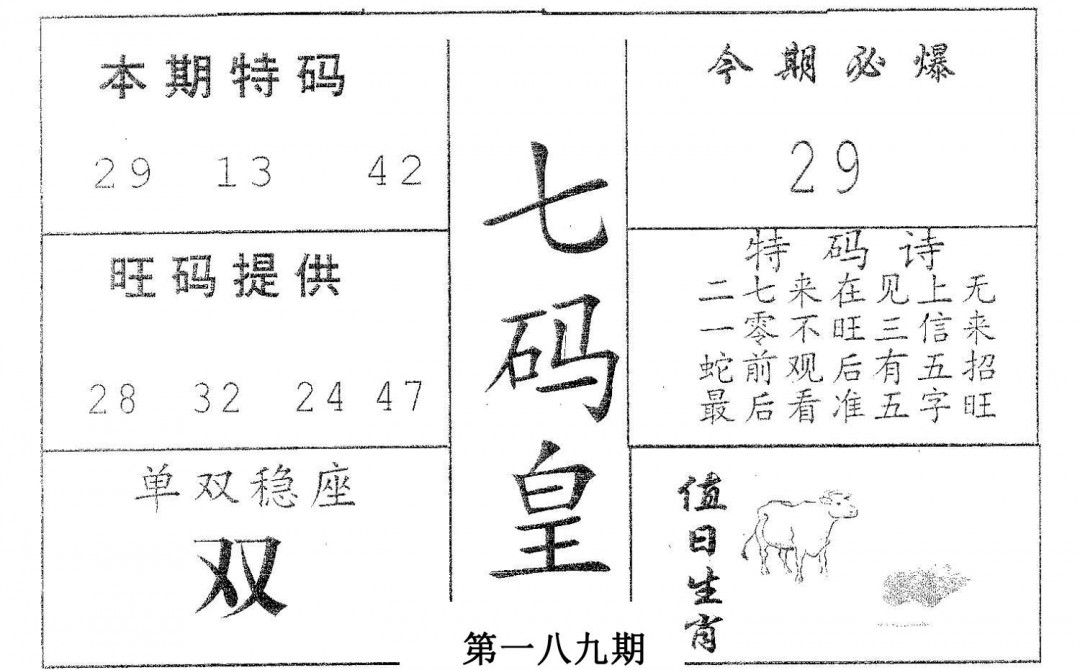 本期特码
29 13 42
旺码提供
28 32 24 47
单双稳座
双
七码皇
第一八九期
今期必爆
29
特码诗
二七来在见上无
一零不旺三信来
蛇前观后有五招
最后看准五字旺
值日生肖